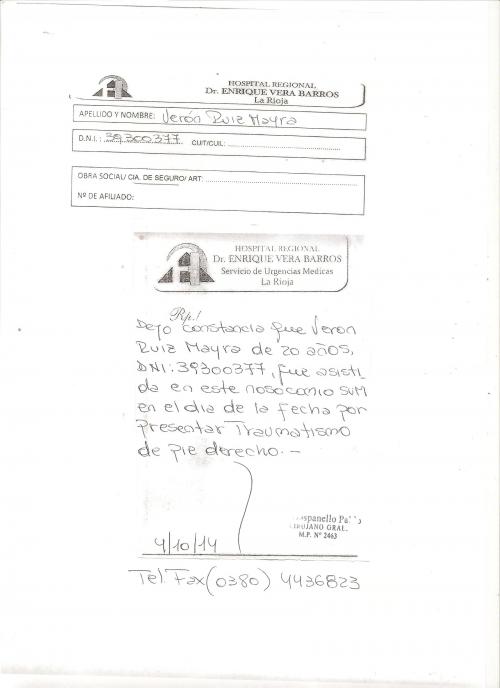 HOSPITAL REGIONAL
Dr. ENRIQUE VERA BARROS
La Rioja
APELLIDO Y NOMBRE: Verón Ruiz Mayra
D.N.I.: 39300377 CUIT/CUIL:
OBRA SOCIAL/ CIA. DE SEGURO/ ART:
Nº DE AFILIADO:
HOSPITAL REGIONAL
Dr. ENRIQUE VERA BARROS
Servicio de Urgencias Medicas
La Rioja
Rp.!
Dejo constancia que Veron
Ruiz Mayra de 20 años,
DNI: 39300377, fue asisti
da en este nosocomio SUM
en el dia de la fecha por
presentar Traumatismo
de pie derecho. -
CIRUJANO GRAL.
M.P. Nº 2463
4/10/14
Tel. Fax (0380) 4436823